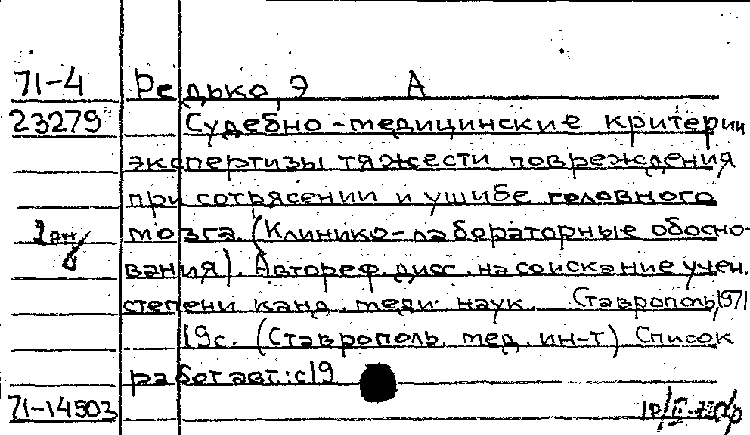 71-4 Редько, Э А
23279 Судебно-медицинские критерии
экспертизы тяжести повреждения
при сотрясении и ушибе головного
мозга. (Клинико-лабораторные обосно-
вания). Автореф. дисс. на соискание учен.
степени канд. меди. наук. Ставрополь, 1971
19с. (Ставрополь. мед. ин-т) Список
работ авт.: с19
71-14503